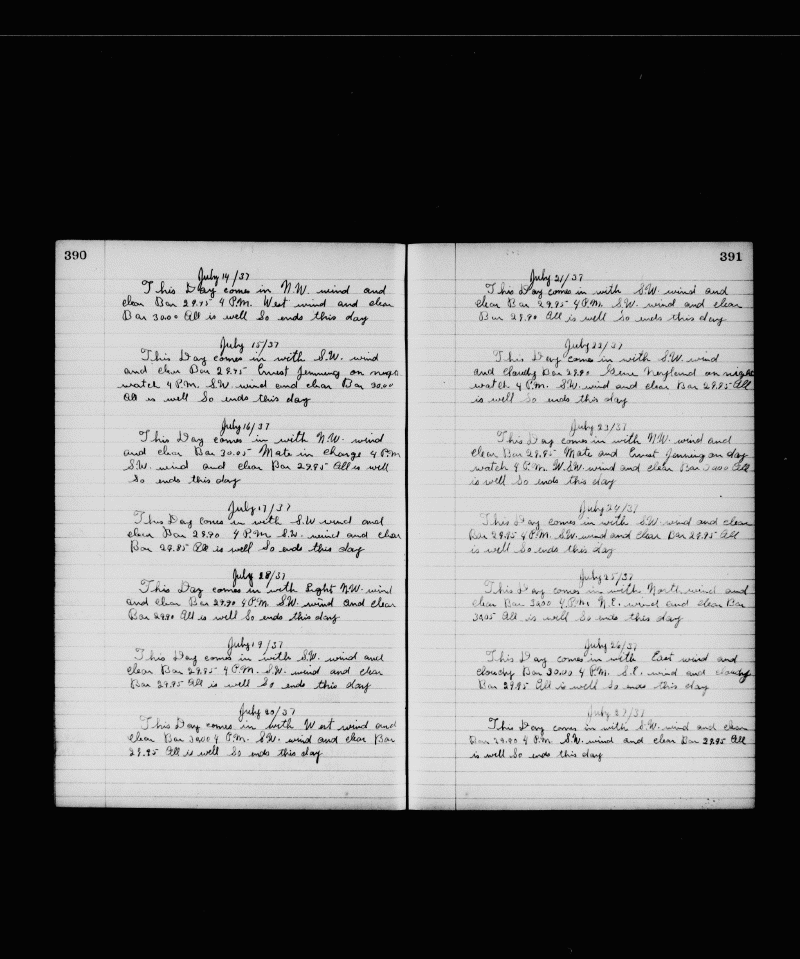 390
July 14/37
This Day comes in N.W. wind and
clear Bar 29.95 4 P.M. West wind and clear
Bar 30.00 All is well So ends this day
July 15/37
This Day comes in with S.W. wind
and clear Bar 29.95 Ernest Jenning on
watch 4 P.M. S.W. wind and clear Bar 30.00
All is well So ends this day
July 16/37
This Day comes in with N.W. wind
and clear Bar 30.05 Mate in charge 4 P.M
S.W. wind and clear Bar 29.95 All is well
So ends this day
July 17/37
This Day comes in with S.W. wind and
clear Bar 29.90 4 P.M. S.W. wind and clear
Bar 29.85 All is well So ends this day
July 28/37
This Day comes in with Light N.W. wind
and clear Bar 29.90 4 P.M. S.W. wind and clear
Bar 29.90 All is well So ends this day
July 19/37
This Day comes in with S.W. wind and
clear Bar 29.95 4 P.M. S.W. wind and clear
Bar 29.95 All is well So ends this day
July 20/37
This Day comes in with West wind and
clear Bar 30.00 4 P.M. S.W. wind and clear Bar
29.95 All is well So ends this day
391
July 21/37
This Day comes in with S.W. wind and
clear Bar 29.95 4 P.M. S.W. wind and clear
Bar 29.90 All is well So ends this day
July 22/37
This Day comes in with S.W. wind
and cloudy Bar 29.90 Gene on night
watch 4 P.M. S.W. wind and clear Bar 29.85 All
is well So ends this day
July 23/37
This Day comes in with N.W. wind and
clear Bar 29.95 Mate and Ernest Jenning on day
watch 4 P.M. W.S.W. wind and clear Bar 30.00 All
is well So ends this day
July 24/37
This Day comes in with S.W. wind and clear
Bar 29.95 4 P.M. S.W. wind and clear Bar 29.95 All
is well So ends this day
July 25/37
This Day comes in with North wind and
clear Bar 30.00 4 P.M. N.E. wind and clear Bar
30.05 All is well So ends this day
July 26/37
This Day comes in with East wind and
cloudy Bar 30.00 4 P.M. S.E. wind and cloudy
Bar 29.95 All is well So ends this day
July 27/37
This Day comes in with S.W. wind and clear
Bar 29.90 4 P.M. S.W. wind and clear Bar 29.95 All
is well So ends this day